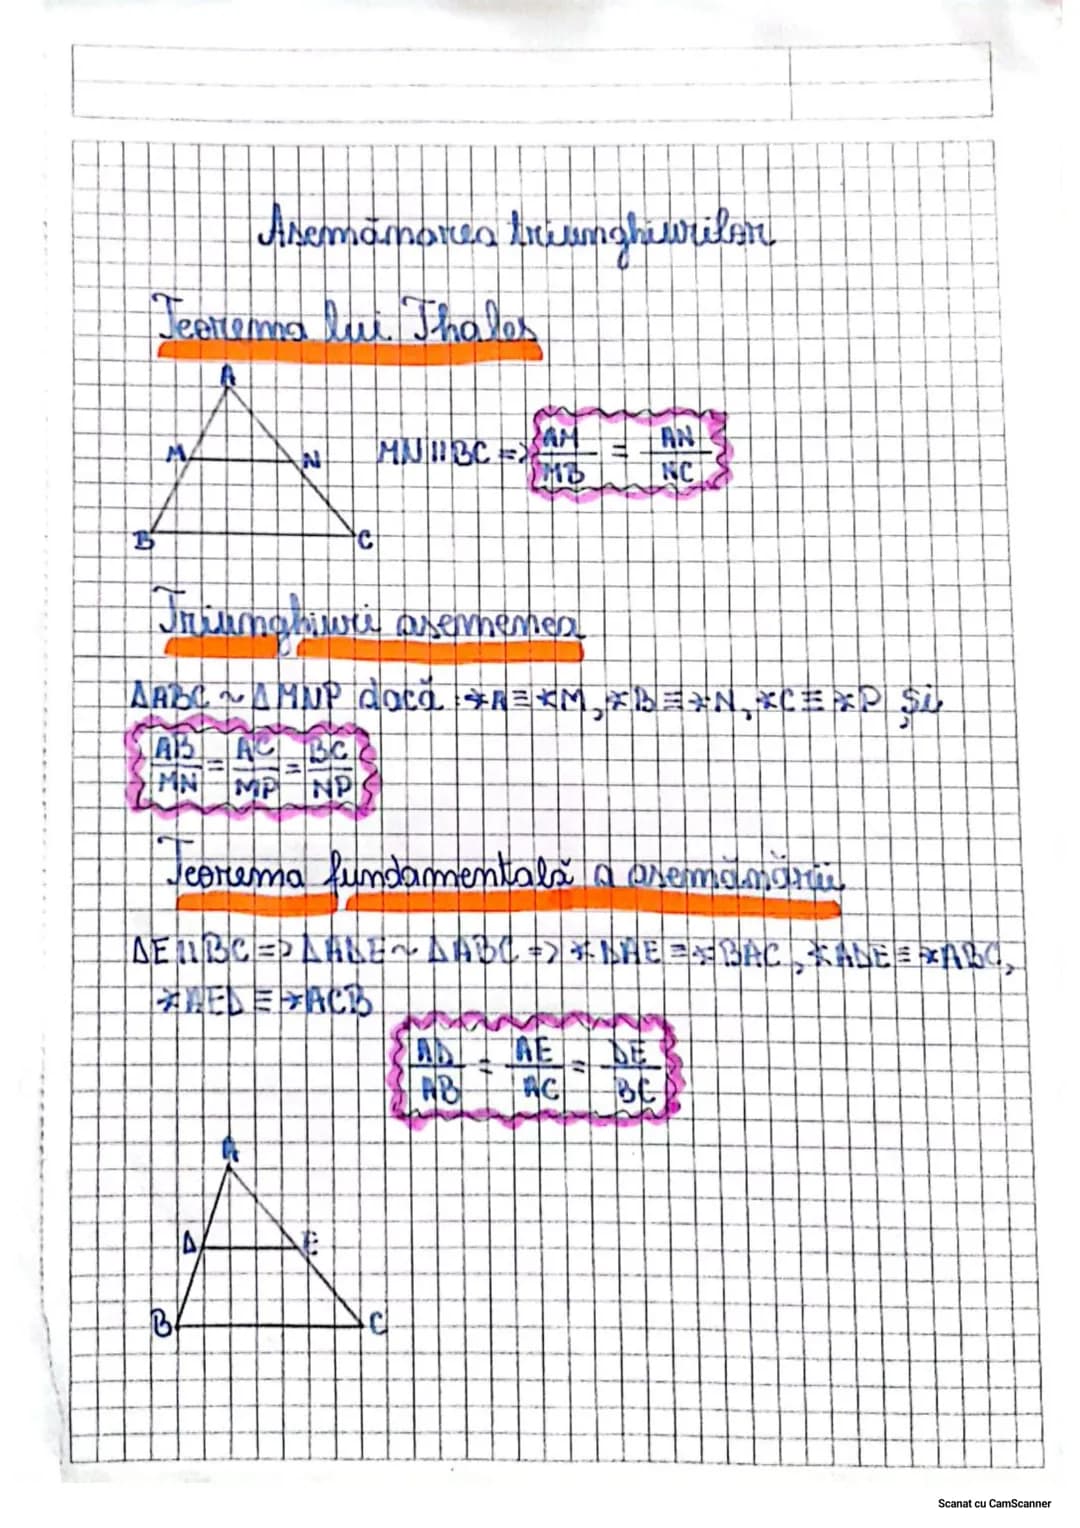 Asemănarea triunghiurilor
Teorema lui Thales
A
M
N
B
C
MN || BC => AM/MB = AN/NC
Triunghiuri asemenea
ΔABC ~ ΔMNP dacă : ∢A ≡ ∢M, ∢B ≡ ∢N, ∢C ≡ ∢P și
AB/MN = AC/MP = BC/NP
Teorema fundamentală a asemănării
DE || BC => ΔADE ~ ΔABC => ∢DAE ≡ ∢BAC, ∢ADE ≡ ∢ABC,
∢AED ≡ ∢ACB
AD/AB = AE/AC = DE/BC
A
D
E
B
C
Scanat cu CamScanner